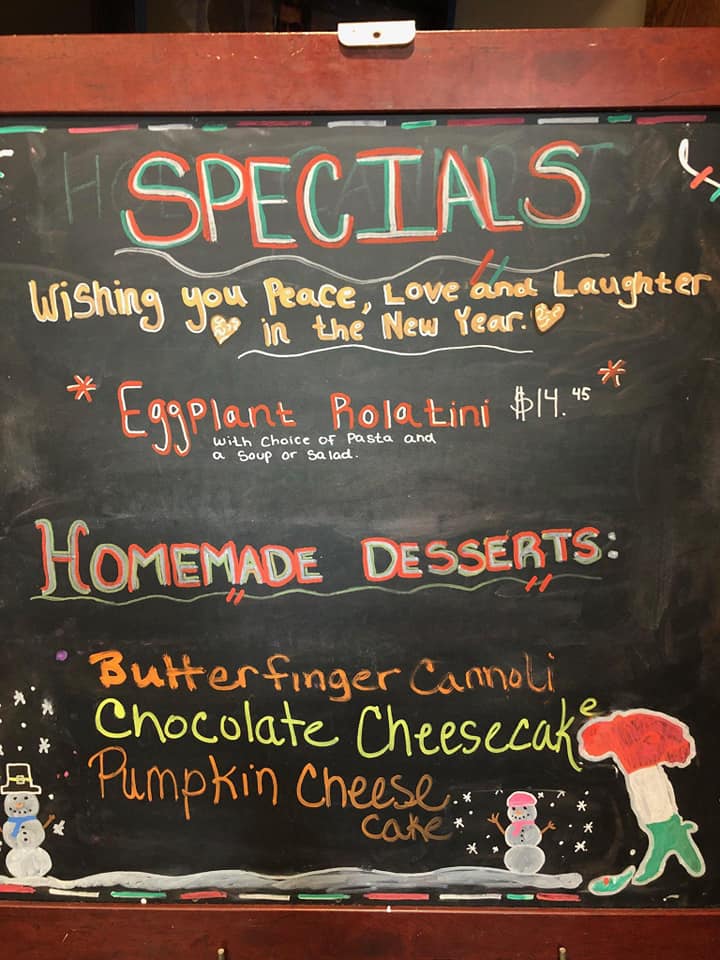 SPECIALS
Wishing you Peace, Love and Laughter
in the New Year.
* Eggplant Rolatini $14.45 *
With Choice of Pasta and
a Soup or Salad.
HOMEMADE DESSERTS:
Butterfinger Cannoli
Chocolate Cheesecake
Pumpkin Cheese
cake